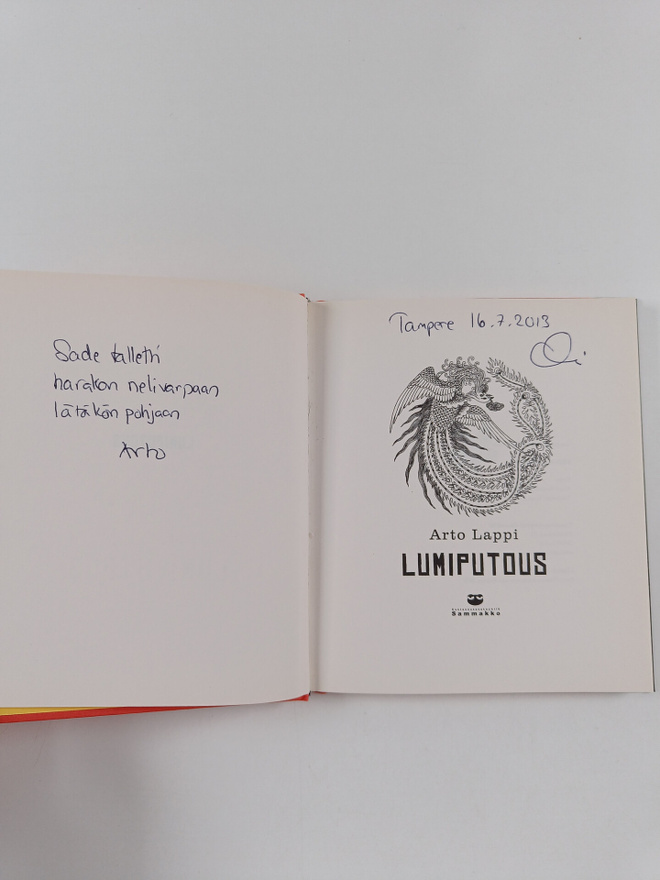 Sade talletti
harakan nelivarpaan
lätäkön pohjaan
Arto
Tampere 16.7.2013
Arto Lappi
LUMIPUTOUS
Sammakko